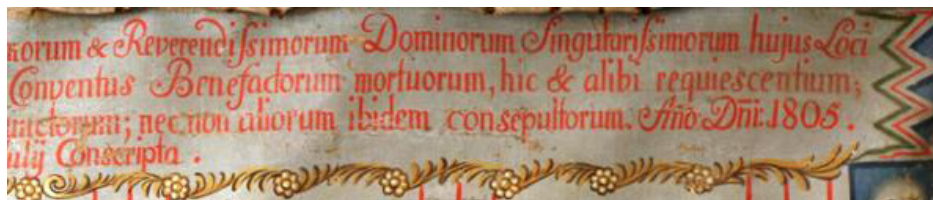 & Reverendissimorum Dominorum Singularissimorum hujus Loci
Conventus Benefactorum mortuorum, hic & alibi requiescentium;
nec non aliorum ibidem consepultorum. Año Dñi: 1805.
Conscripta.